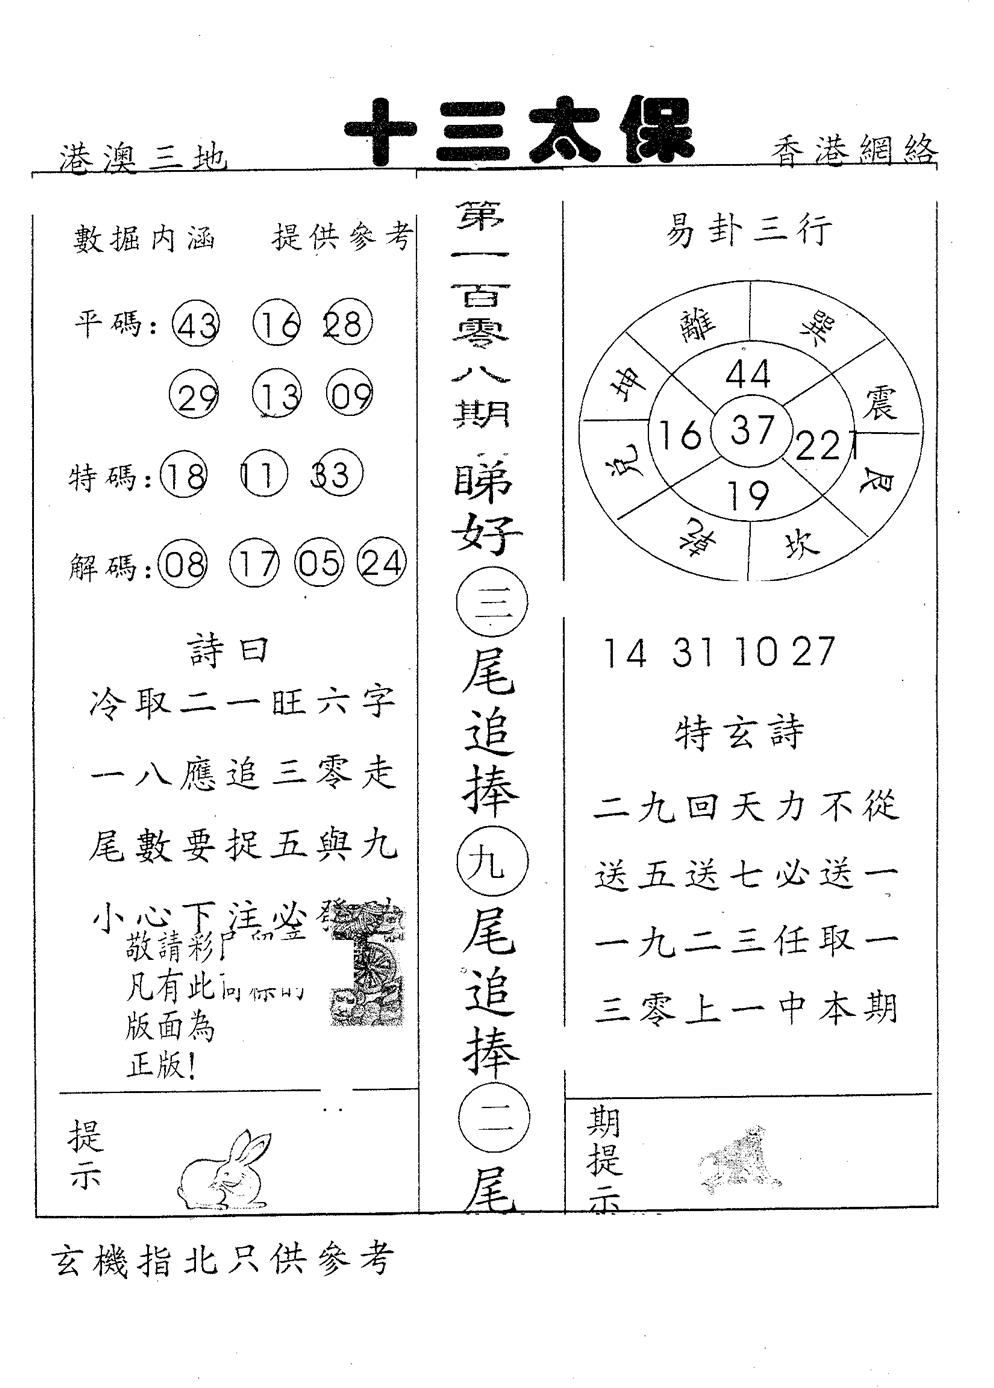 十三太保
港澳三地
香港網絡
數掘内涵 提供參考
平碼: 43 16 28
29 13 09
特碼: 18 11 33
解碼: 08 17 05 24
詩曰
冷取二一旺六字
一八應追三零走
尾數要捉五與九
小心下注必發
敬請彩
凡有此
版面為
正版!
提示
第一百零八期
睇好三尾追捧九尾追捧二尾
易卦三行
離 巽
坤 震
兌 艮
乾 坎
44
16 37 221
19
14 31 10 27
特玄詩
二九回天力不從
送五送七必送一
一九二三任取一
三零上一中本期
期提示
玄機指北只供參考